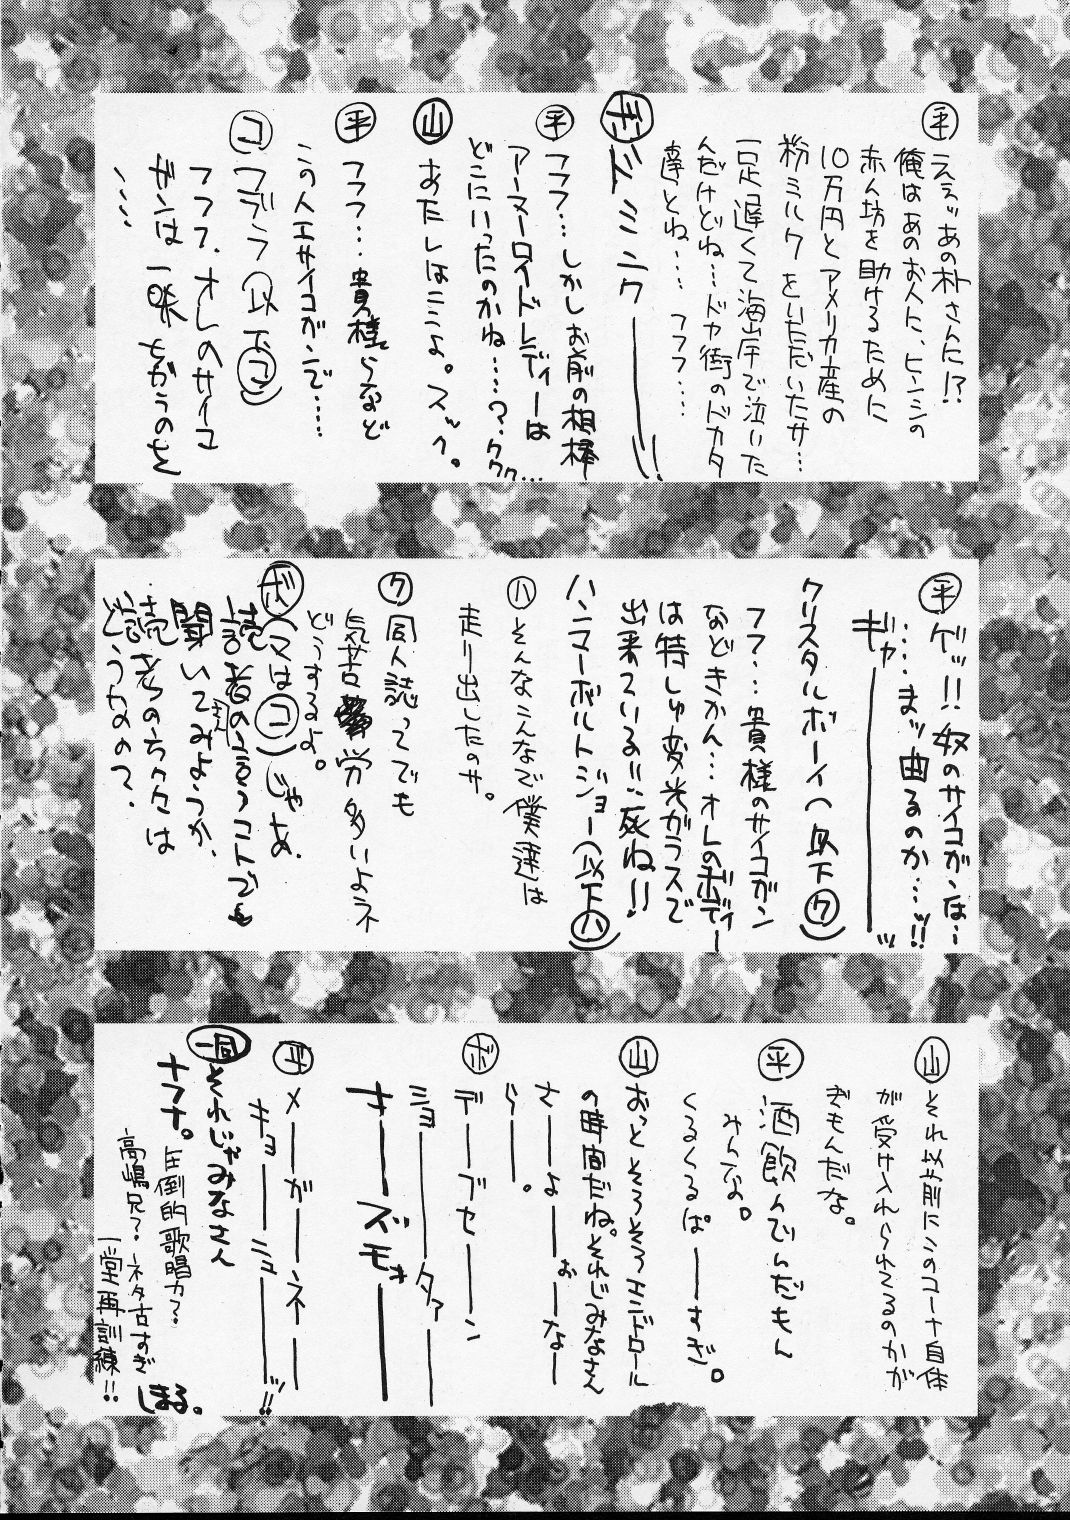 平 えぇッあの朴さんに!?
俺はあのお人に、ヒンシの
赤ん坊を助けるために
10万円とアメリカ産の
粉ミルクをいただいたサ…
一足遅くて海岸で泣いた
んだけどね…ドヤ街のドカタ
達とね… フフフ…
ボ ドミニクーーー!!
平 フフフ…しかしお前の相棒
アーマーロイドレディーは
どこにいったのかね…?ククク…
山 あたしはここよ。ズベ。
平 フフフ…貴様らなど
この人エサイコガンで……
コ コブラ(以下コ)
フフフ.オレのサイコ
ガンは一味ちがうのを
……
平 ゲッ!!奴のサイコガンは…
……まッ曲るのか…ッ!!
ギャーーーッ
クリスタルボーイ(以下ク)
フフ…貴様のサイコガン
などきかん…オレのボディー
は特しゅ変光ガラスで
出来ている!!死ね!!
ハンマーボルトジョー(以下ハ)
ハ そんなこんなで僕達は
走り出したのサ。
ク 同人誌ってでも
気苦労多いよネ
どうするよ。
ボ (マはコ)じゃあ.
読者の言うコトでも
聞いてみようか、
読者の方々は
どうなの?.
山 それ以前にこのコーナ自体
が受け入れられてるのかが
ぎもんだな。
平 酒飲んでんだもん
みんな。
くるくるぱーーすぎ。
山 おっとそろそろエンドロール
の時間だね。それじみなさん
さーーよーーおーーなーー
らーー。
ボ デーーブセーーン
ショーーータァーーー
オーーズモォーーー
平 メーーガーーネーー
キョーーニューーーッ!!
一同 それじゃみなさん
ナフナ。
圧倒的歌唱力?
高嶋兄? ネタ古すぎ
一堂再訓練!!
しまる。